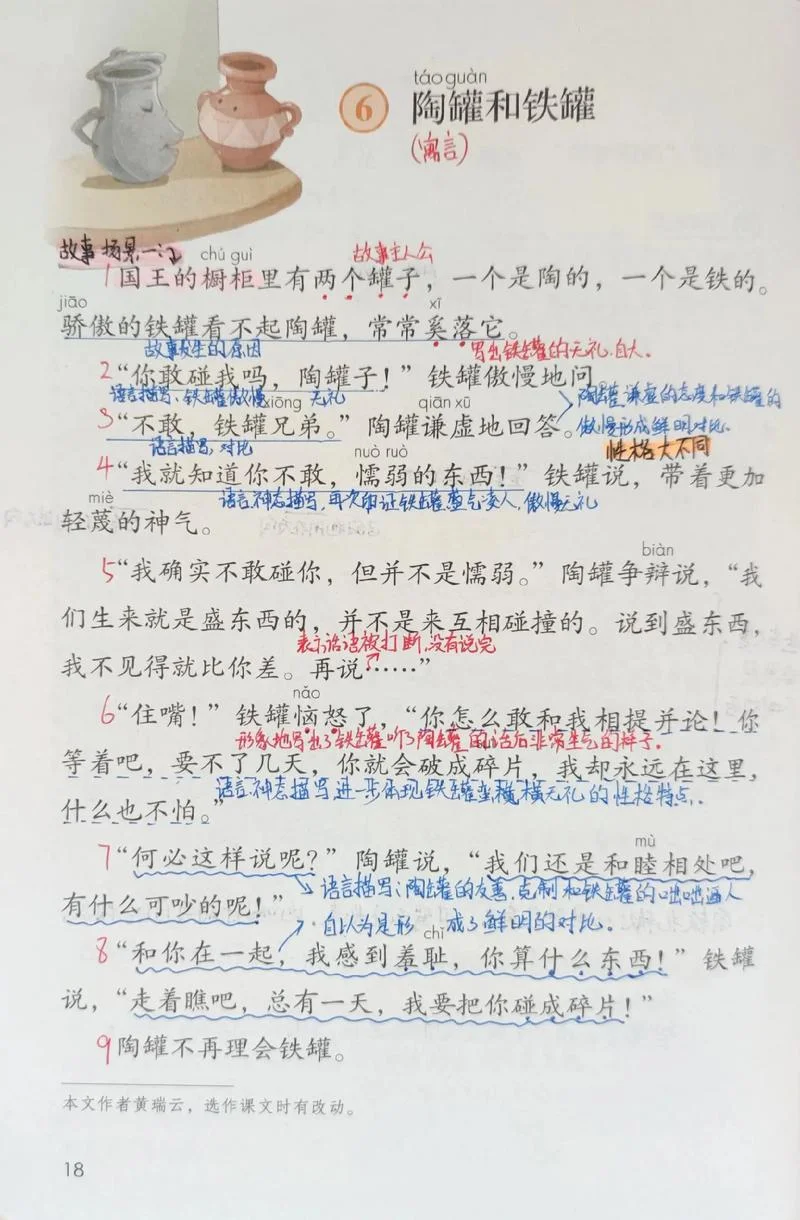 táo guàn
6 陶罐和铁罐
(寓言)
故事场景一
chú guì
故事主人公
1国王的橱柜里有两个罐子，一个是陶的，一个是铁的。
jiāo
xī
骄傲的铁罐看不起陶罐，常常奚落它。
故事发生的原因
写出铁罐的无礼、自大。
2“你敢碰我吗，陶罐子！”铁罐傲慢地问。
语言描写、铁罐傲慢 无礼
陶罐谦虚的态度和铁罐的
xiōng
qiān xū
3“不敢，铁罐兄弟。”陶罐谦虚地回答。
傲慢形成鲜明对比.
语言描写，对比
性格大不同
nuò ruò
4“我就知道你不敢，懦弱的东西！”铁罐说，带着更加
miè
语言、神态描写，再次印证铁罐盛气凌人，傲慢无礼
轻蔑的神气。
biàn
5“我确实不敢碰你，但并不是懦弱。”陶罐争辩说，“我
们生来就是盛东西的，并不是来互相碰撞的。说到盛东西，
表示话语被打断，没有说完
我不见得就比你差。再说……”
nǎo
6“住嘴！”铁罐恼怒了，“你怎么敢和我相提并论！你
形象地写出了铁罐听了陶罐的话后非常生气的样子.
等着吧，要不了几天，你就会破成碎片，我却永远在这里，
语言、神态描写进一步体现铁罐蛮横无礼的性格特点.
什么也不怕。”
mù
7“何必这样说呢？”陶罐说，“我们还是和睦相处吧，
语言描写：陶罐的友善、克制和铁罐的咄咄逼人
有什么可吵的呢！”
自以为是形成了鲜明的对比。
chǐ
8“和你在一起，我感到羞耻，你算什么东西！”铁罐
说，“走着瞧吧，总有一天，我要把你碰成碎片！”
9陶罐不再理会铁罐。
本文作者黄瑞云，选作课文时有改动。
18